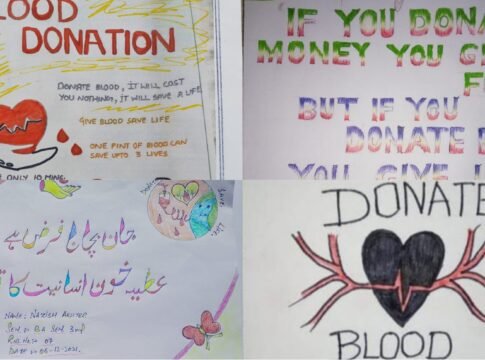 BLOOD
DONATION
DONATE BLOOD, IT WILL COST
YOU NOTHING, IT WILL SAVE A LIFE
GIVE BLOOD SAVE LIFE
ONE PINT OF BLOOD CAN
SAVE UPTO 3 LIVES
ONLY 10 MINS
IF YOU DONA
MONEY YOU G
F
BUT IF YOU
DONATE
YOU GIVE
جان بچانا فرض ہے
عطیہ خون انسانیت کا
Save
Life
NAME: NAZISH AKHTER
B.A SEM 3rd
ROLL NO 07
DATE 06-12-2021
DONATE
BLOOD